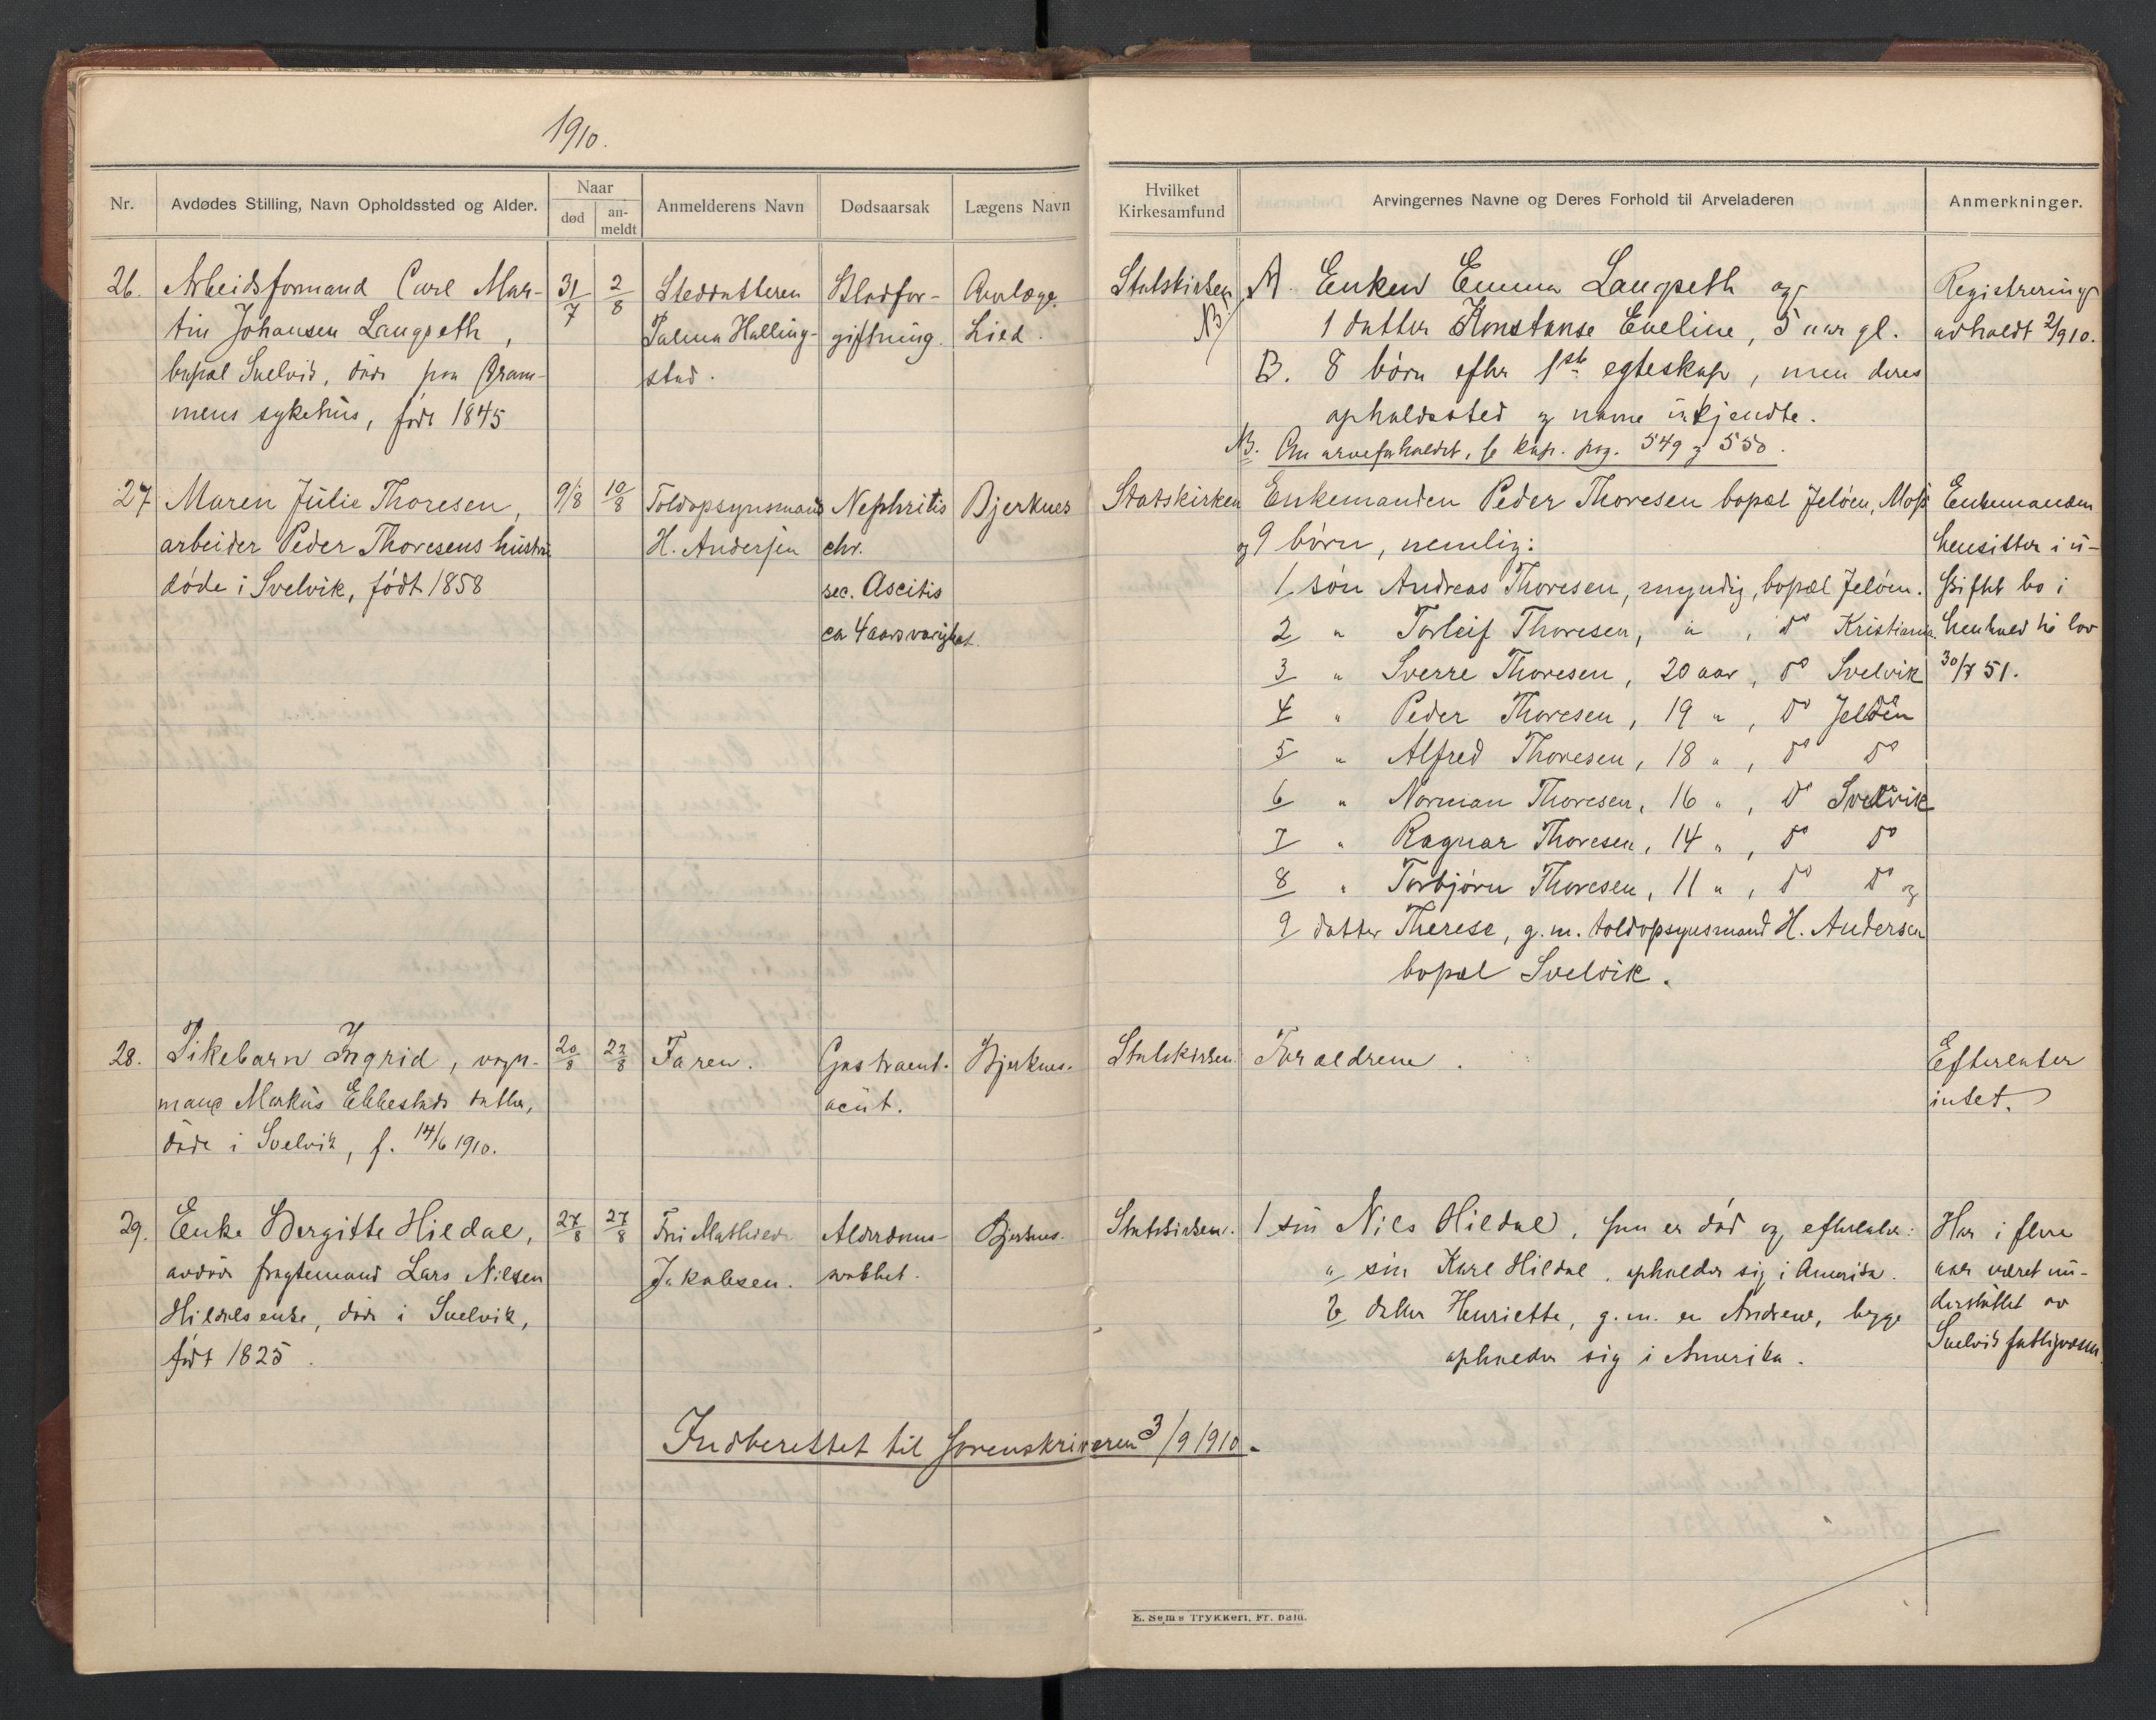 1910.
Nr. Avdødes Stilling, Navn Opholdssted og Alder. Naar død an-meldt Anmelderens Navn Dødsaarsak Lægens Navn Hvilket Kirkesamfund Arvingernes Navne og Deres Forhold til Arveladeren Anmerkninger.
26. Arbeidsformand Carl Mar- 31/7 2/8 Steddatteren Blodfor- Statskirken A. Enken Emma Langseth og Registrering
tin Johansen Langseth, Palma Halling- giftning. Lied. NB 1 datter Konstanse Eveline, 5 aar gl. avholdt 2/9 10.
bopæl Svelvik, døde paa Dram- stad. B. 8 børn efter 1ste egteskap, men deres
mens sykehus, født 1845 opholdssted og navne ukjendte.
NB. Om arveforholdet, se kop. pag. 549 og 550.
27 Maren Julie Thoresen, 9/8 10/8 Toldopsynsmand Nephritis Bjerknes Statskirken Enkemanden Peder Thoresen bopæl Jeløen, Moss Enkemanden
arbeider Peder Thoresens hustru H. Andersen chr. og 9 børn, nemlig: hensitter i u-
døde i Svelvik, født 1858 sec. Ascitis 1 søn Andreas Thoresen, myndig, bopæl Jeløen. skiftet bo i
ca 4 aars varighet. 2 " Torleif Thoresen, " , do Kristiania. henhold til lov
3 " Sverre Thoresen, 20 aar, do Svelvik 30/7 51.
4 " Peder Thoresen, 19 " , do Jeløen
5 " Alfred Thoresen, 18 " , do do
6 " Norman Thoresen, 16 " , do Svelvik
7 " Ragnar Thoresen, 14 " , do do
8 " Torbjørn Thoresen, 11 " , do do og
9 datter Therese, g.m. toldopsynsmand H. Andersen
bopæl Svelvik.
28. Pikebarn Ingrid, vogn- 20/8 22/8 Faren. Gastroent. Bjerknes. Statskirken. Forældrene. Efterlater
mand Markus Ebbestads datter, acut. intet.
døde i Svelvik, f. 14/6 1910.
29. Enke Bergitte Hildal, 27/8 27/8 Fru Mathilde Alderdoms- Bjerknes. Statskirken. 1 søn Nils Hildal, som er død og efterlater: Har i flere
avdøde fragtemand Lars Nilsen Jakobsen. svakhet. a søn Karl Hildal, opholder sig i Amerika. aar været un-
Hildals enke, døde i Svelvik, b datter Henriette, g.m. en Andrew, begge derstøttet av
født 1825. opholder sig i Amerika. Svelvik fattigvæsen.
Indberettet til sorenskriveren 3/9 1910.
E. Sems Trykkeri, Fr. hald.